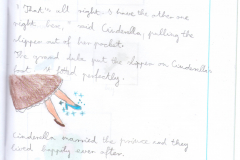 "That's all right, I have the other one
right here," said Cinderella, pulling the
slipper out of her pocket.
The grand duke put the slipper on Cinderella's
foot. It fitted perfectly.
Cinderella married the prince and they
lived happily ever after.